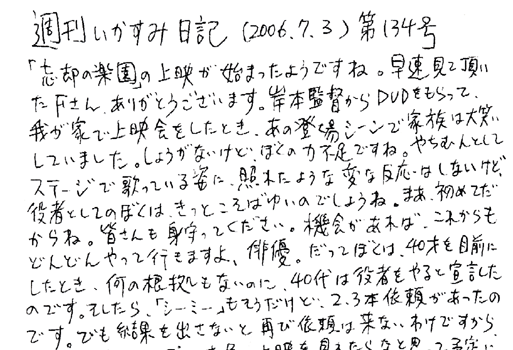 週刊いかすみ日記 (2006.7.3) 第134号
「忘却の楽園」の上映が始まったようですね。早速見て頂い
たFさん、ありがとうございます。岸本監督からDVDをもらって、
我が家で上映会をしたとき、あの登場シーンで家族は大笑い
していました。しょうがないけど、ぼくの力不足ですね。やちむんとして
ステージで歌っている姿に、照れたような変な反応はしないけど、
役者としてのぼくは、きっとこそばゆいのでしょうね。まあ、初めてだ
からね。皆さんも見守ってください。機会があれば、これからも
どんどんやって行きますよ、俳優。だってぼくは、40才を目前に
したとき、何の根拠もないのに、40代は役者をやると宣言した
のです。そしたら、「シーミー」もそうだけど、2、3本依頼があったの
です。でも結果を出さないと再び依頼は来ないわけですから、